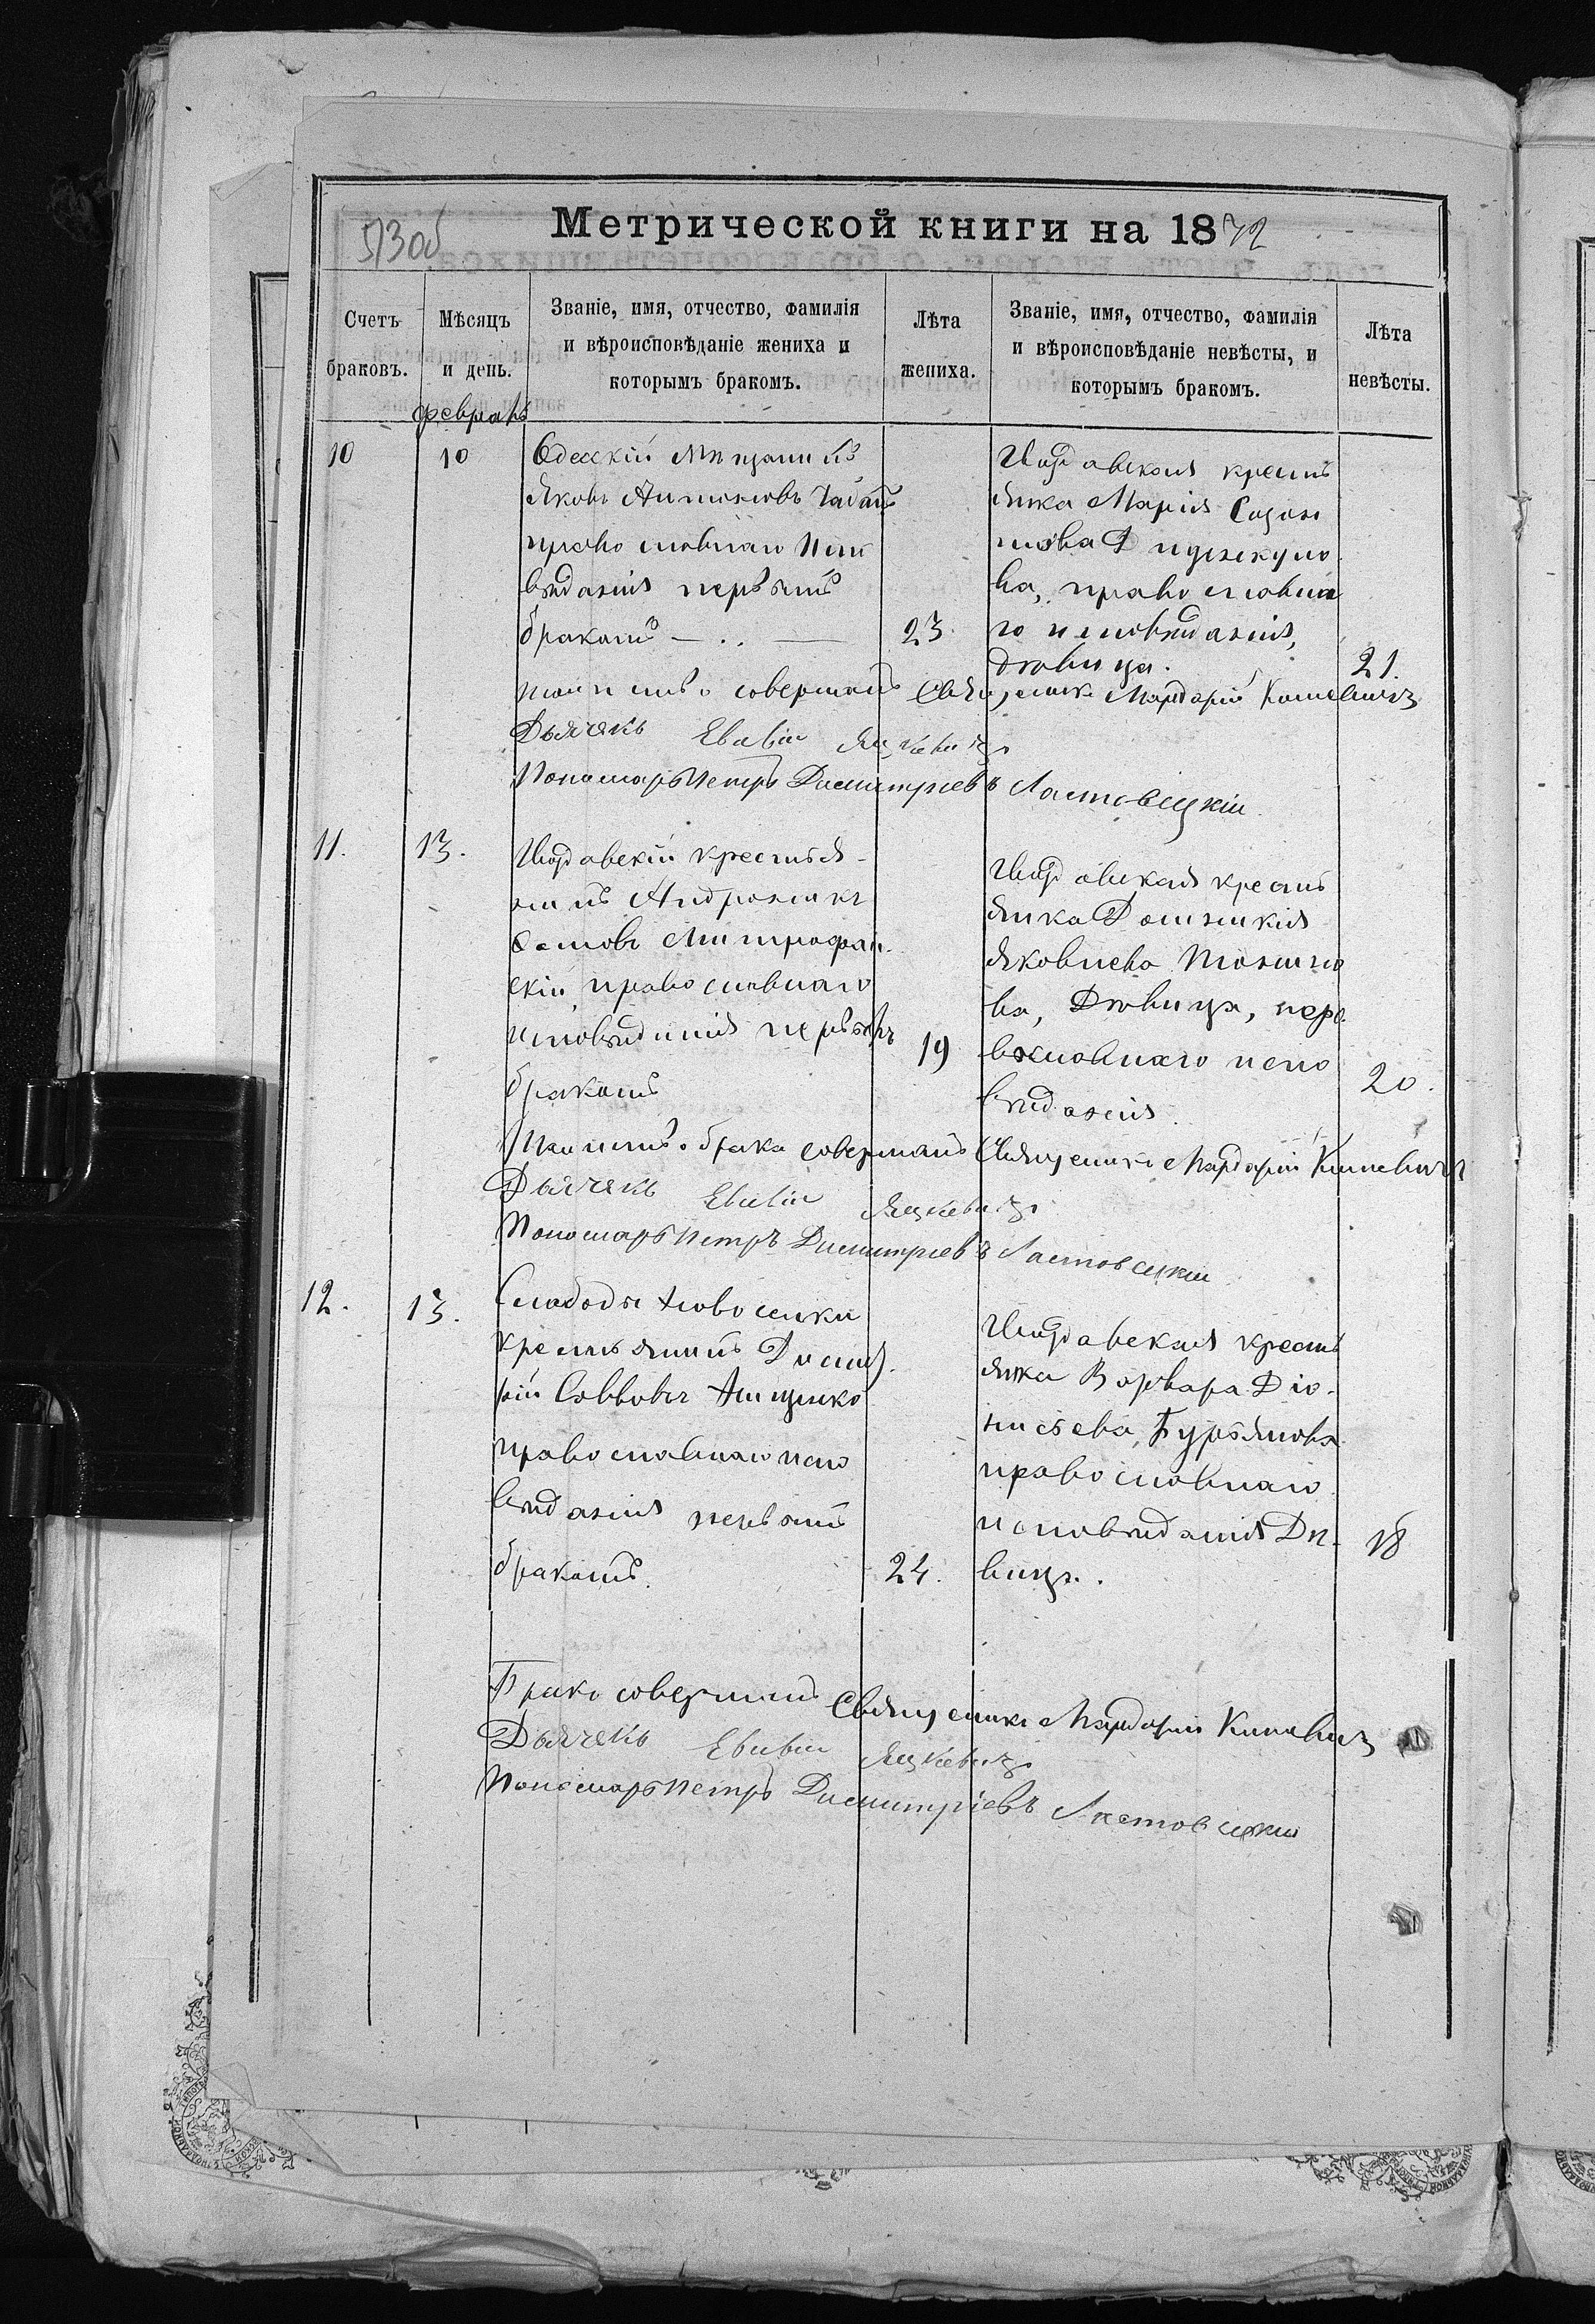 Метрической книги на 1872
513об
Счетъ браковъ.
Мѣсяцъ и день.
Званіе, имя, отчество, фамилія и вѣроисповѣданіе жениха и которымъ бракомъ.
Лѣта жениха.
Званіе, имя, отчество, фамилія и вѣроисповѣданіе невѣсты, и которымъ бракомъ.
Лѣта невѣсты.
Февраль
10
10
Одесскій мѣщанинъ
Яковъ Антоновъ Чабанъ
православнаго испо
вѣданія первымъ
бракомъ
23.
кресть
янка Марія Созон
това
ва, православна
го исповѣданія,
дѣвица.
21.
совершалъ Священникъ Мардарій
Дьячекъ Еввін Яцкевичъ
Пономарь Петръ Димитріевъ Ластовецкій.
11.
13.
крестья-
нинъ Андроникъ
Митрофан-
скій православнаго
исповѣданія первымъ
бракомъ
19
кресть
янка Домникія
Яковлева
ва, Дѣвица, пра-
вославнаго испо
вѣданія.
20.
брака совершалъ Священникъ Мардарій
Дьячекъ Яцкевичъ
Пономарь Петръ Димитріевъ Ластовецкій
12.
13.
Слободы Новоселки
крестьянинъ Димит.
рій Саввовъ
православнаго испо
вѣданія первымъ
бракомъ.
24.
кресть
янка Варвара Діо-
нисьева, Бурьянова
православнаго
исповѣданія Дѣ-
вица.
18
Бракъ совершалъ Священникъ Мардарій
Дьячекъ Яцкевичъ
Пономарь Петръ Димитріевъ Ластовецкій